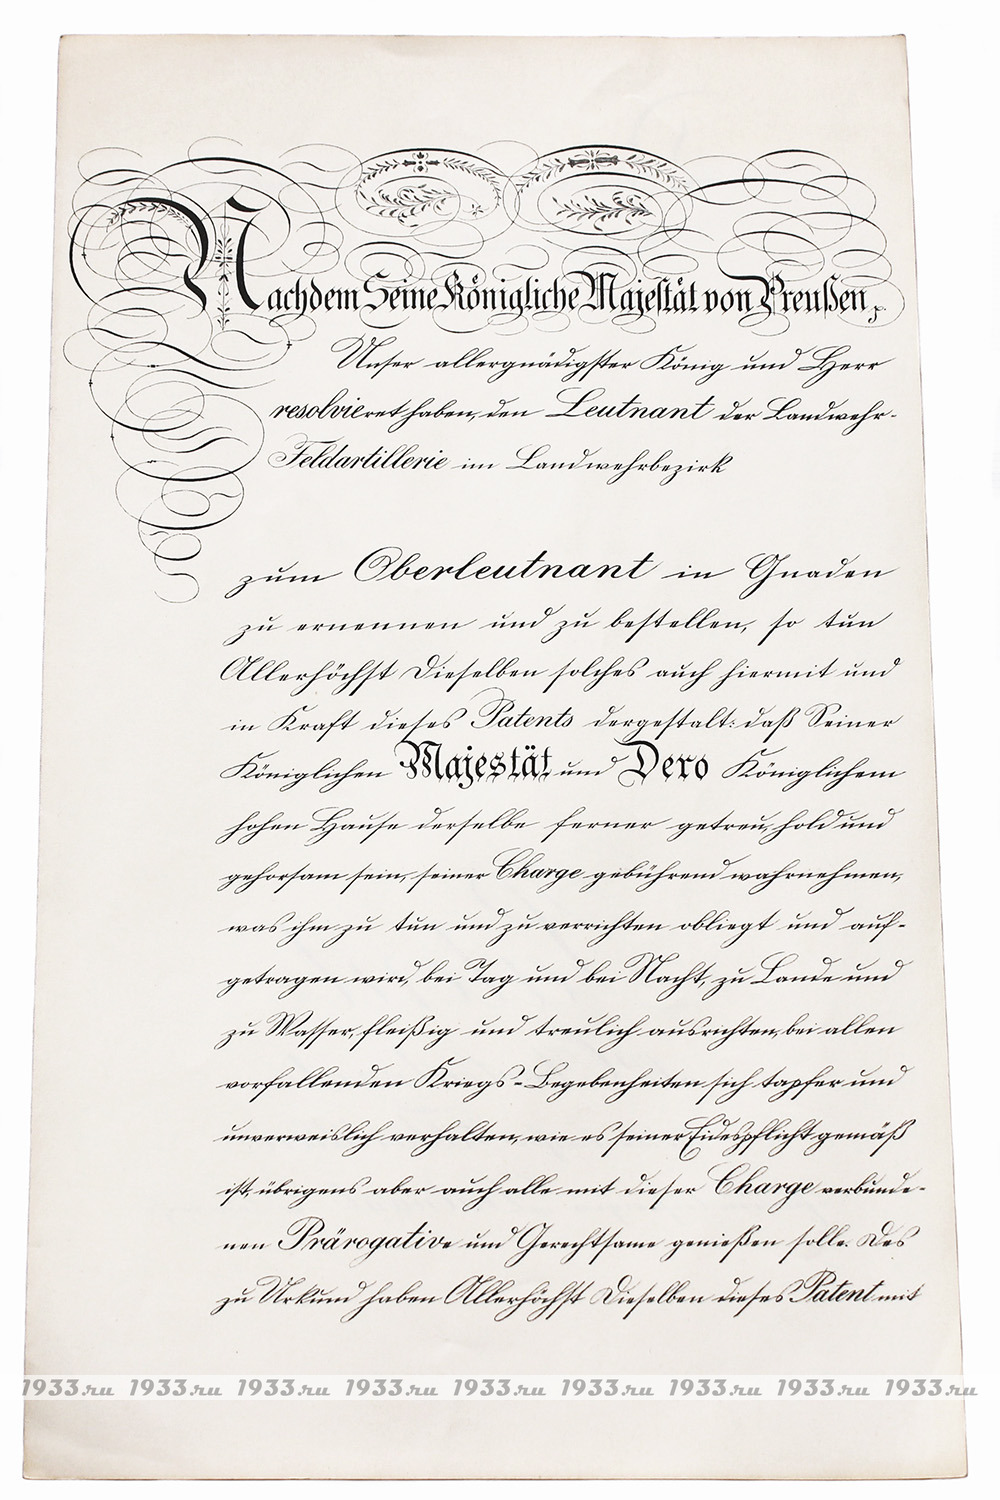 Nachdem Seine Königliche Majestät von Preußen,
Unser allergnädigster König und Herr
resolvieret haben, den Leutnant der Landwehr-
Feldartillerie im Landwehrbezirk
zum Oberleutnant in Gnaden
zu ernennen und zu bestellen, so tun
Allerhöchst Dieselben solches auch hiermit und
in Kraft dieses Patents dergestalt: daß Seiner
Königlichen Majestät und Dero Königlichem
hohen Hause derselbe ferner getreu, hold und
gehorsam sein, seiner Charge gebührend wahrnehmen,
was ihm zu tun und zu verrichten obliegt und auf-
getragen wird, bei Tag und bei Nacht, zu Lande und
zu Wasser, fleißig und treulich ausrichten, bei allen
vorfallenden Kriegs-Begebenheiten sich tapfer und
unverweislich verhalten, wie es seiner Eidespflicht gemäß
ist, übrigens aber auch alle mit dieser Charge verbunde-
nen Prärogative und Gerechtsame genießen solle. Des
zu Urkund haben Allerhöchst Dieselben dieses Patent mit
1933.ru 1933.ru 1933.ru 1933.ru 1933.ru 1933.ru 1933.ru 1933.ru 1933.ru